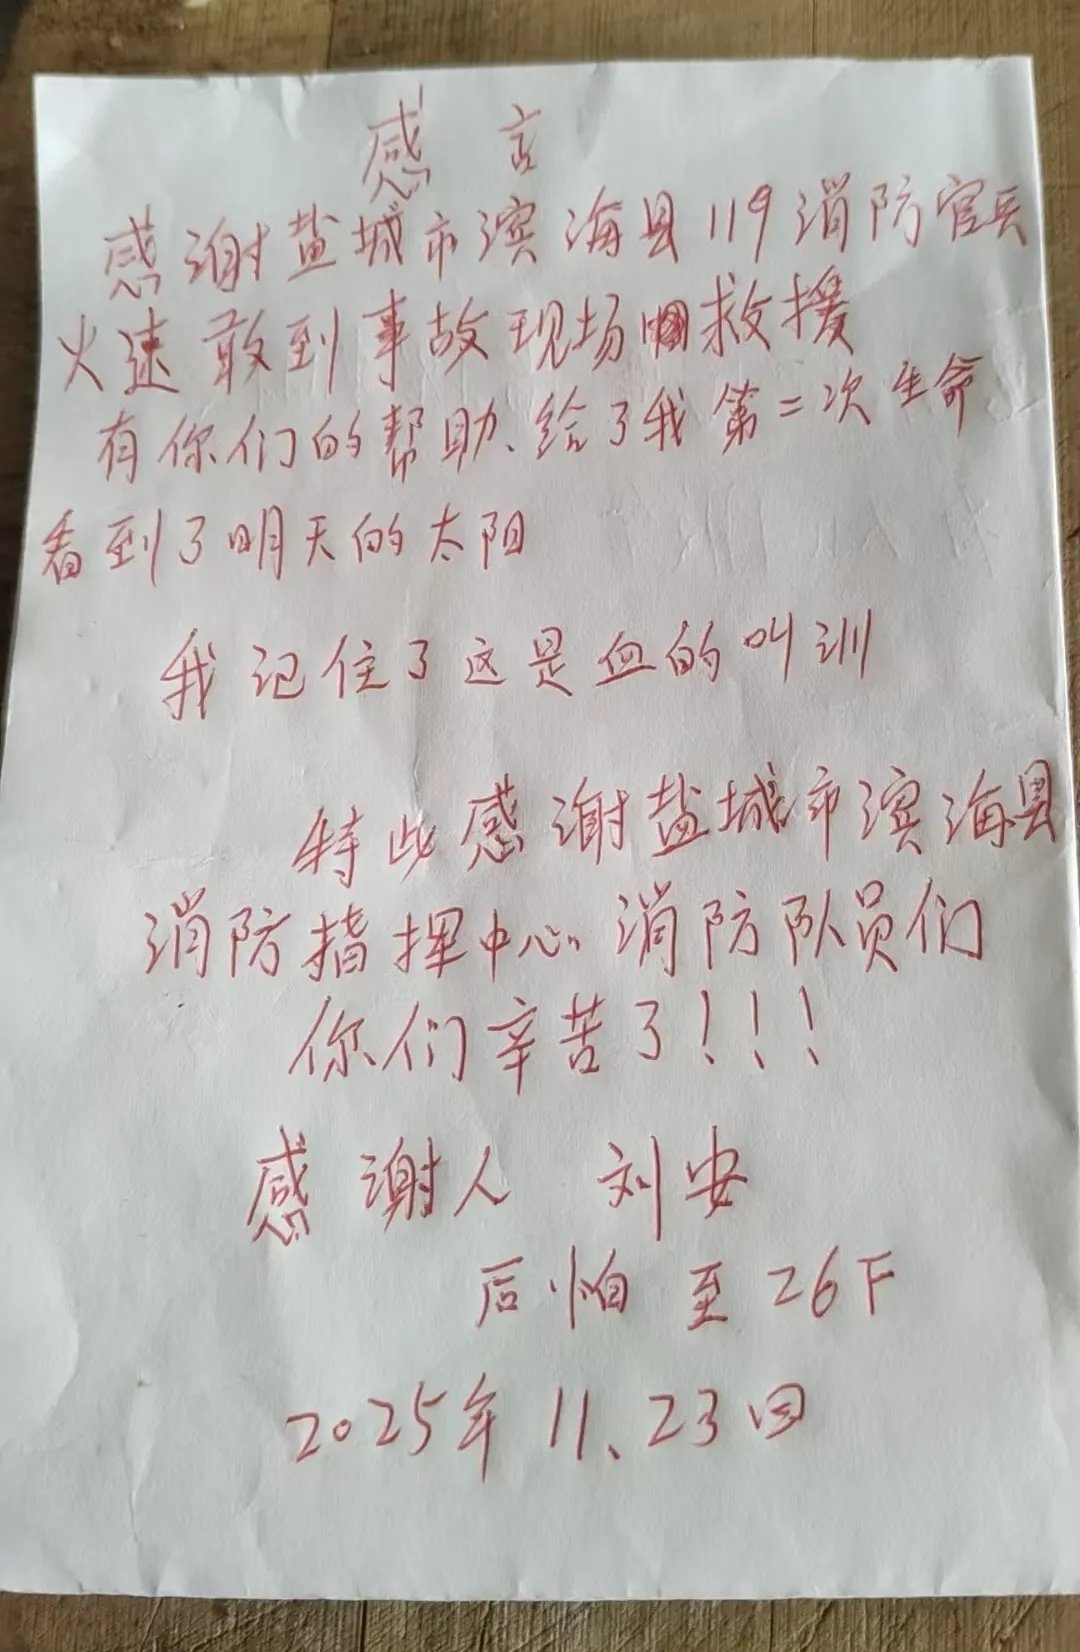 感言
感谢盐城市滨海县119消防官兵
火速敢到事故现场救援
有你们的帮助、给了我第二次生命
看到了明天的太阳
我记住了这是血的叫训
特此感谢盐城市滨海县
消防指挥中心、消防队员们
你们辛苦了!!!
感谢人 刘安
后怕至26F
2025年11、23日